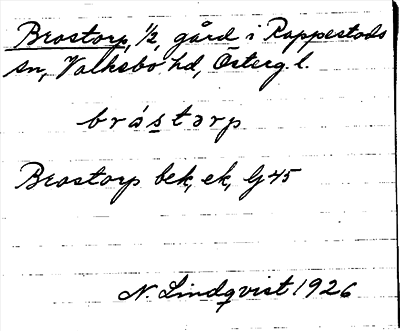 Brostorp, 1/2, gård i Rappestads
sn, Valkebo hd, Österg. l.
bróstərp
Brostorp bek, ek, Gj 45
N. Lindqvist 1926